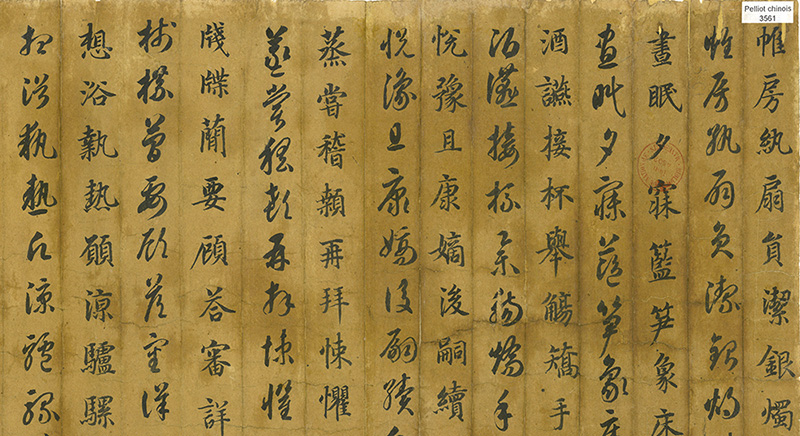 Pelliot chinois
3561
帷房紈扇員潔銀燭
帷房紈扇員潔銀燭
晝眠夕寐籃笋象床
晝眠夕寐藍笋象床
酒讌接杯舉觴矯手
酒讌接杯舉觴矯手
悅豫且康嫡後嗣續
悅豫且康嫡後嗣續
蒸嘗稽顙再拜悚懼
蒸嘗稽顙再拜悚懼
牋牒蕳要顧答審詳
牋牒簡要顧答審詳
想浴執熱願涼驢騾
想浴執熱願涼驢騾